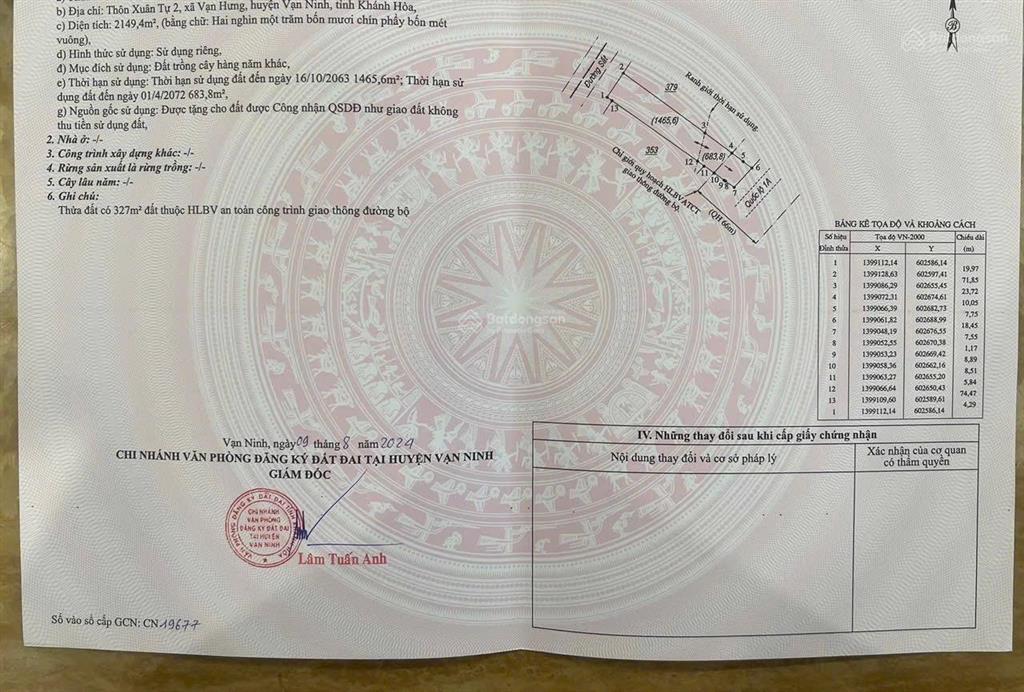 b) Địa chỉ: Thôn Xuân Tự 2, xã Vạn Hưng, huyện Vạn Ninh, tỉnh Khánh Hòa,
c) Diện tích: 2149,4m², (bằng chữ: Hai nghìn một trăm bốn mươi chín phẩy bốn mét
vuông),
d) Hình thức sử dụng: Sử dụng riêng,
đ) Mục đích sử dụng: Đất trồng cây hàng năm khác,
e) Thời hạn sử dụng: Thời hạn sử dụng đất đến ngày 16/10/2063 1465,6m²; Thời hạn sử
dụng đất đến ngày 01/4/2072 683,8m²,
g) Nguồn gốc sử dụng: Được tặng cho đất được Công nhận QSDĐ như giao đất không
thu tiền sử dụng đất,
2. Nhà ở: -/-
3. Công trình xây dựng khác: -/-
4. Rừng sản xuất là rừng trồng: -/-
5. Cây lâu năm: -/-
6. Ghi chú:
Thửa đất có 327m² đất thuộc HLBV an toàn công trình giao thông đường bộ
B
Đường Sắt
Ranh giới thời hạn sử dụng.
379
(1465,6)
353
(683,8)
1
2
3
4
5
6
7
8
9
10
11
12
13
Quốc lộ 1A
Chỉ giới quy hoạch HLBVATCT
giao thông đường bộ.
(QH 66m)
BẢNG KÊ TỌA ĐỘ VÀ KHOẢNG CÁCH
Số hiệu Đỉnh thửa | Tọa độ VN-2000 | Chiều dài (m)
X Y
1 1399112,14 602586,14
19,97
2 1399128,63 602597,41
71,85
3 1399086,29 602655,45
23,72
4 1399072,31 602674,61
10,05
5 1399066,39 602682,73
7,75
6 1399061,82 602688,99
18,45
7 1399048,19 602676,55
7,55
8 1399052,55 602670,38
1,17
9 1399053,23 602669,42
8,89
10 1399058,36 602662,16
8,51
11 1399063,27 602655,20
5,84
12 1399066,64 602650,43
74,47
13 1399109,60 602589,61
4,29
1 1399112,14 602586,14
Batdongsan
Vạn Ninh, ngày 09 tháng 8 năm 2024
CHI NHÁNH VĂN PHÒNG ĐĂNG KÝ ĐẤT ĐAI TẠI HUYỆN VẠN NINH
GIÁM ĐỐC
CHI NHÁNH
VĂN PHÒNG
ĐĂNG KÝ ĐẤT ĐAI
TẠI HUYỆN
VẠN NINH
Lâm Tuấn Anh
IV. Những thay đổi sau khi cấp giấy chứng nhận
Nội dung thay đổi và cơ sở pháp lý
Xác nhận của cơ quan
có thẩm quyền
Số vào sổ cấp GCN: CN 19677